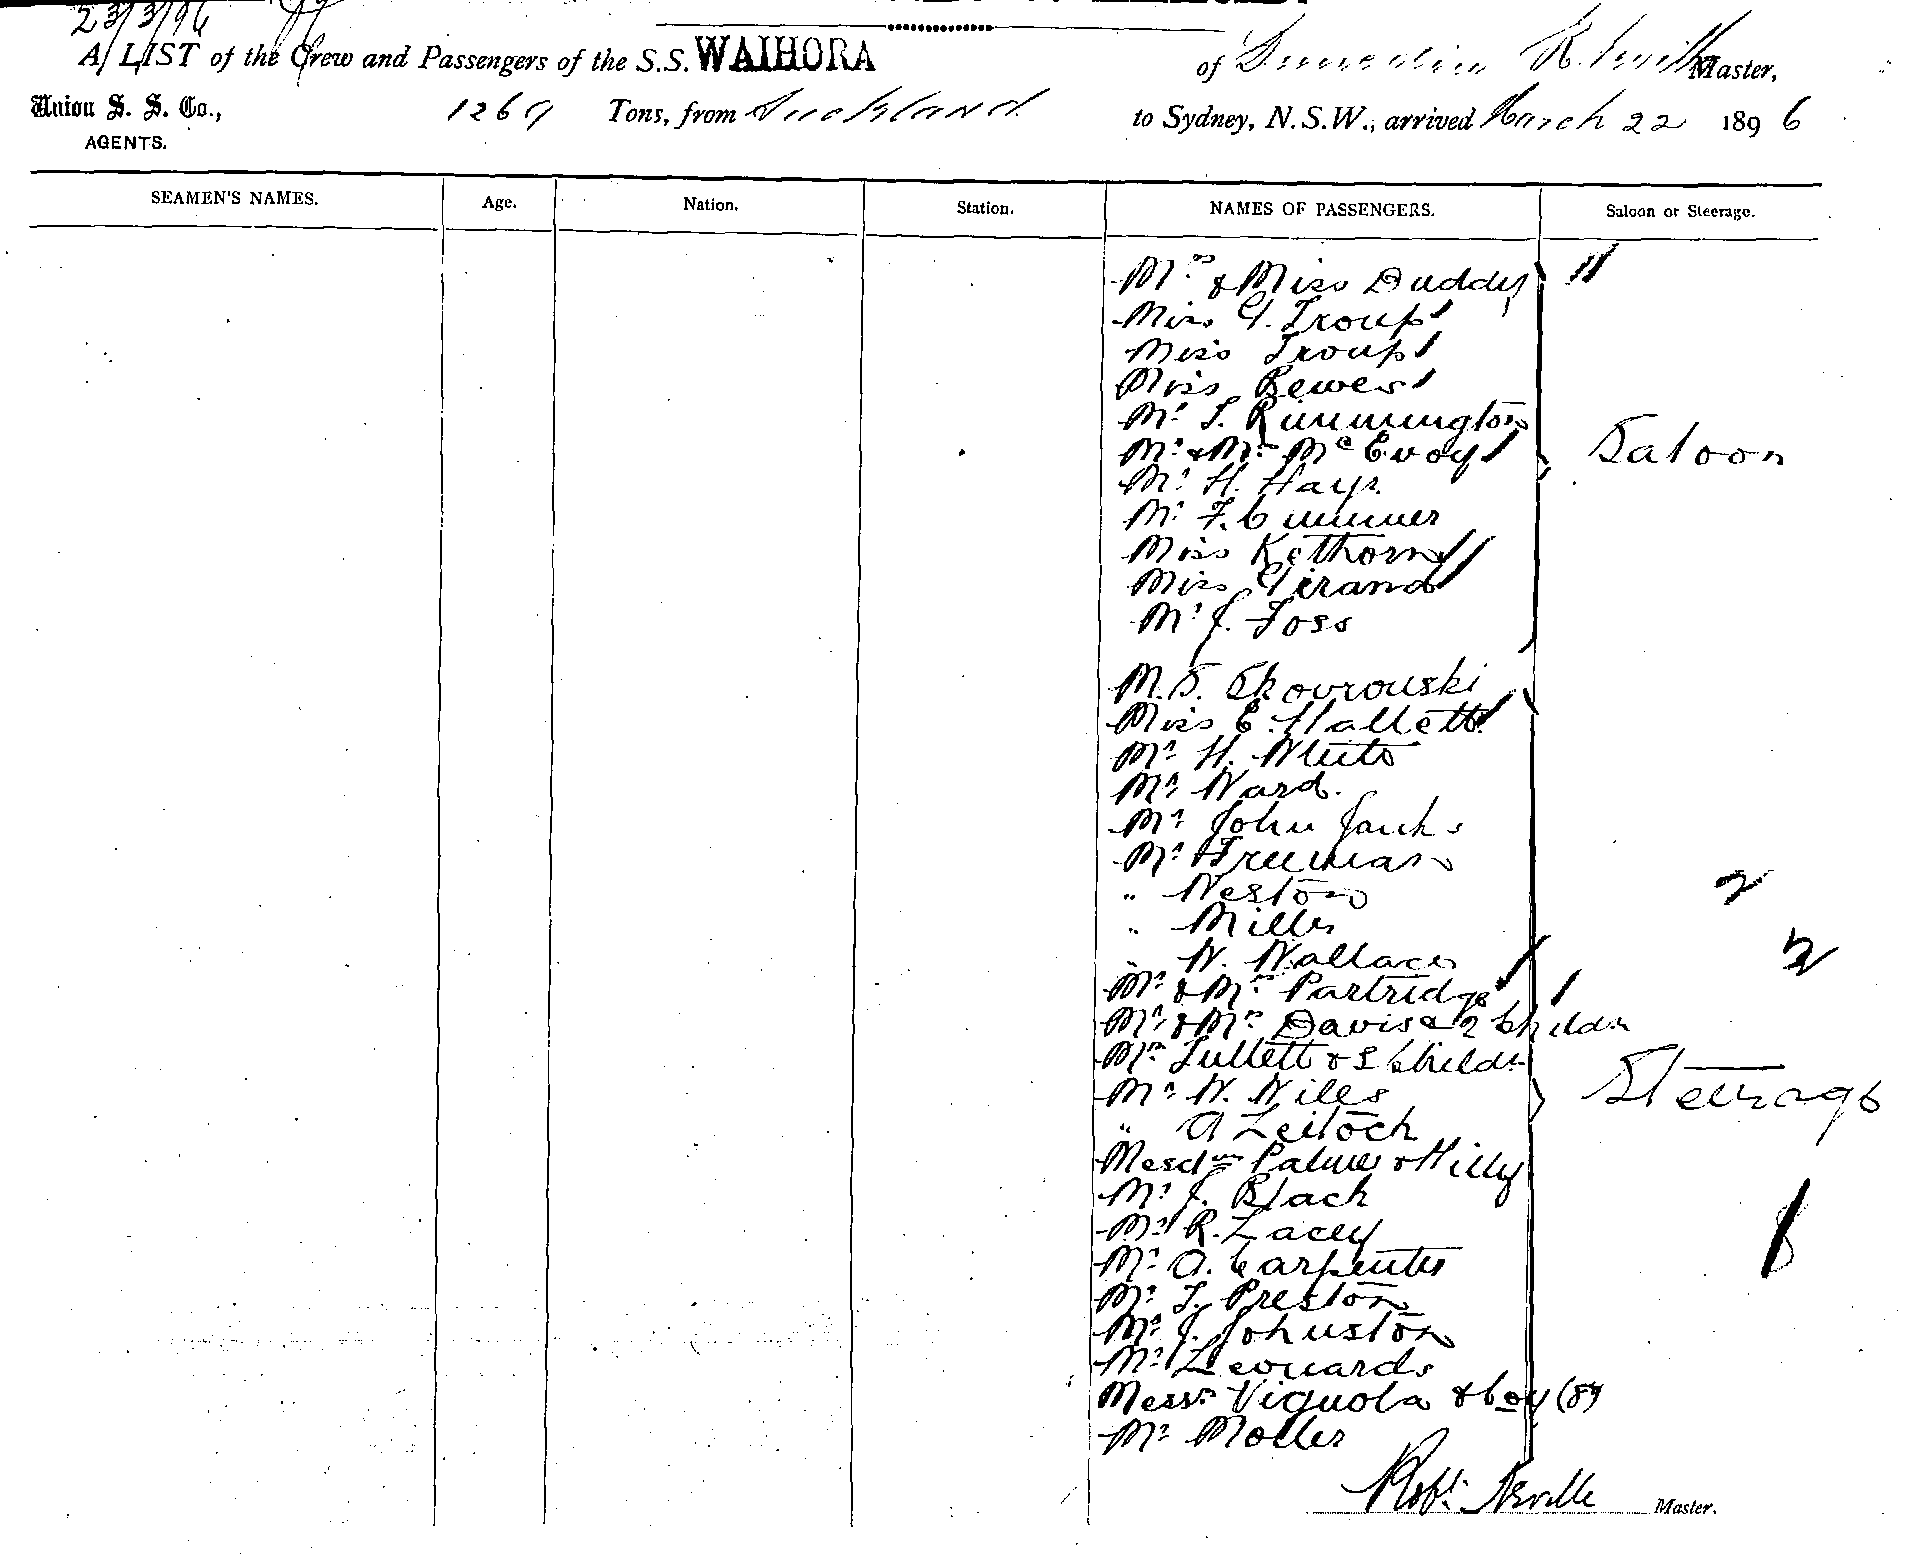 23/3/96
A LIST of the Crew and Passengers of the S.S. WAIHORA of Dunedin R. Neville Master,
Union S. S. Co., 1269 Tons, from Auckland to Sydney, N.S.W., arrived March 22 1896
AGENTS.
SEAMEN'S NAMES. Age. Nation. Station. NAMES OF PASSENGERS. Saloon or Steerage.
Mrs & Miss Duddy
Miss G. Troup
Miss Troup
Miss Bewes
Mr T. Rimmington
Mr & Mrs McEvoy Saloon
Mr H. Hays
Mr F. Cummer
Miss Kethorn
Miss Girand
Mr J. Foss
M. S. Skovrouski
Miss E. Hallett
Mr H. White
Mr Ward.
Mr John Janks
Mr Freeman
" Weston
2
" Miller
" W. Wallace
2
Mr & Mrs Partridge
Mr & Mrs Davis & 2 Childn
Mrs Tullett & 5 Childn
Mr W. Wills Steerage
" A Leitoch
Mesdms Palmer & Hilly
Mr J. Black
Mr R. Lacey
Mr A. Carpenter
Mr T. Preston
Mr J. Johnston
Mr Leonards
Messrs Vignola & boy (8)
Mr Moller
Robt. Neville Master.